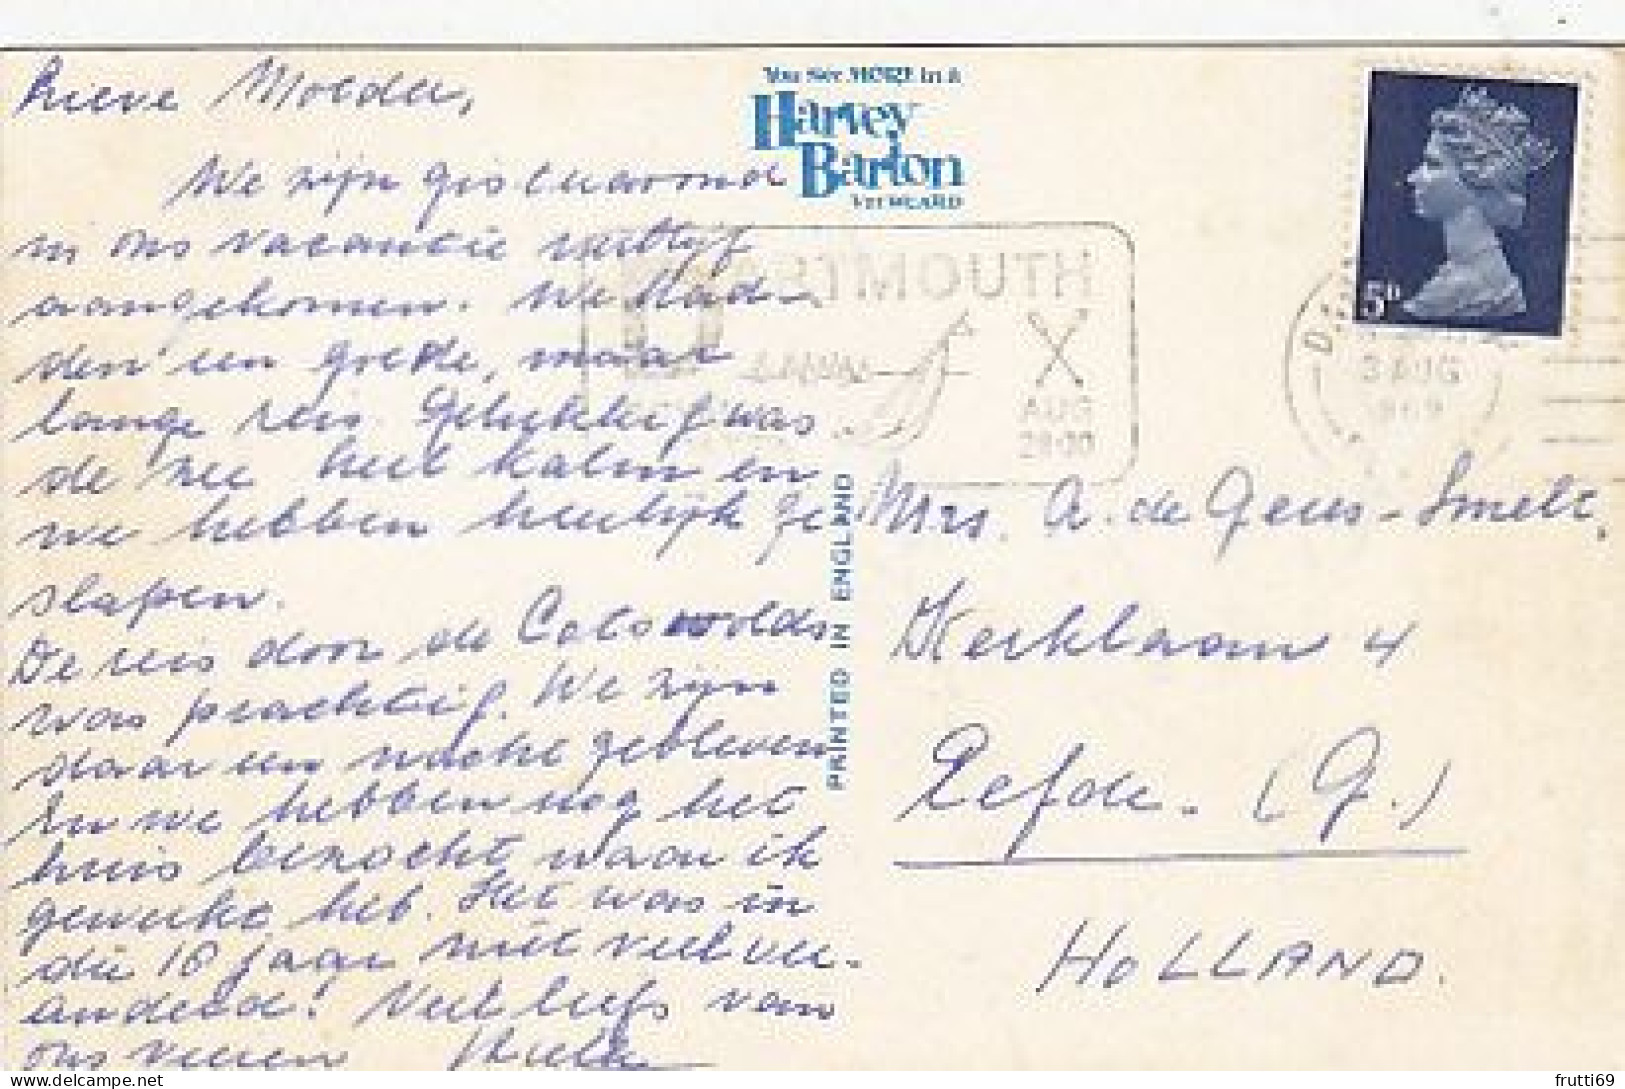 Lieve Moeder,
We zijn gisteravond
in ons vacantie verblijf
aangekomen. We had-
den een goede, maar
lange reis. Gelukkig was
de zee heel kalm en
we hebben heerlijk ge
slapen.
De reis door de Cotswolds
was prachtig. We zijn
daar een nacht gebleven
En we hebben nog het
huis bezocht waar ik
gewerkt heb. Het was in
die 16 jaar niet veel ver-
anderd! Veel liefs van
ons vieren
You See MORE in a
Harvey
Barton
VIEWCARD
DARTMOUTH
AUG
28-30
5D
3 AUG
1969
PRINTED IN ENGLAND
Mrs. A. de Geus-Smelt,
Kerklaan 4
Eefde. (G.)
HOLLAND.
frutti69